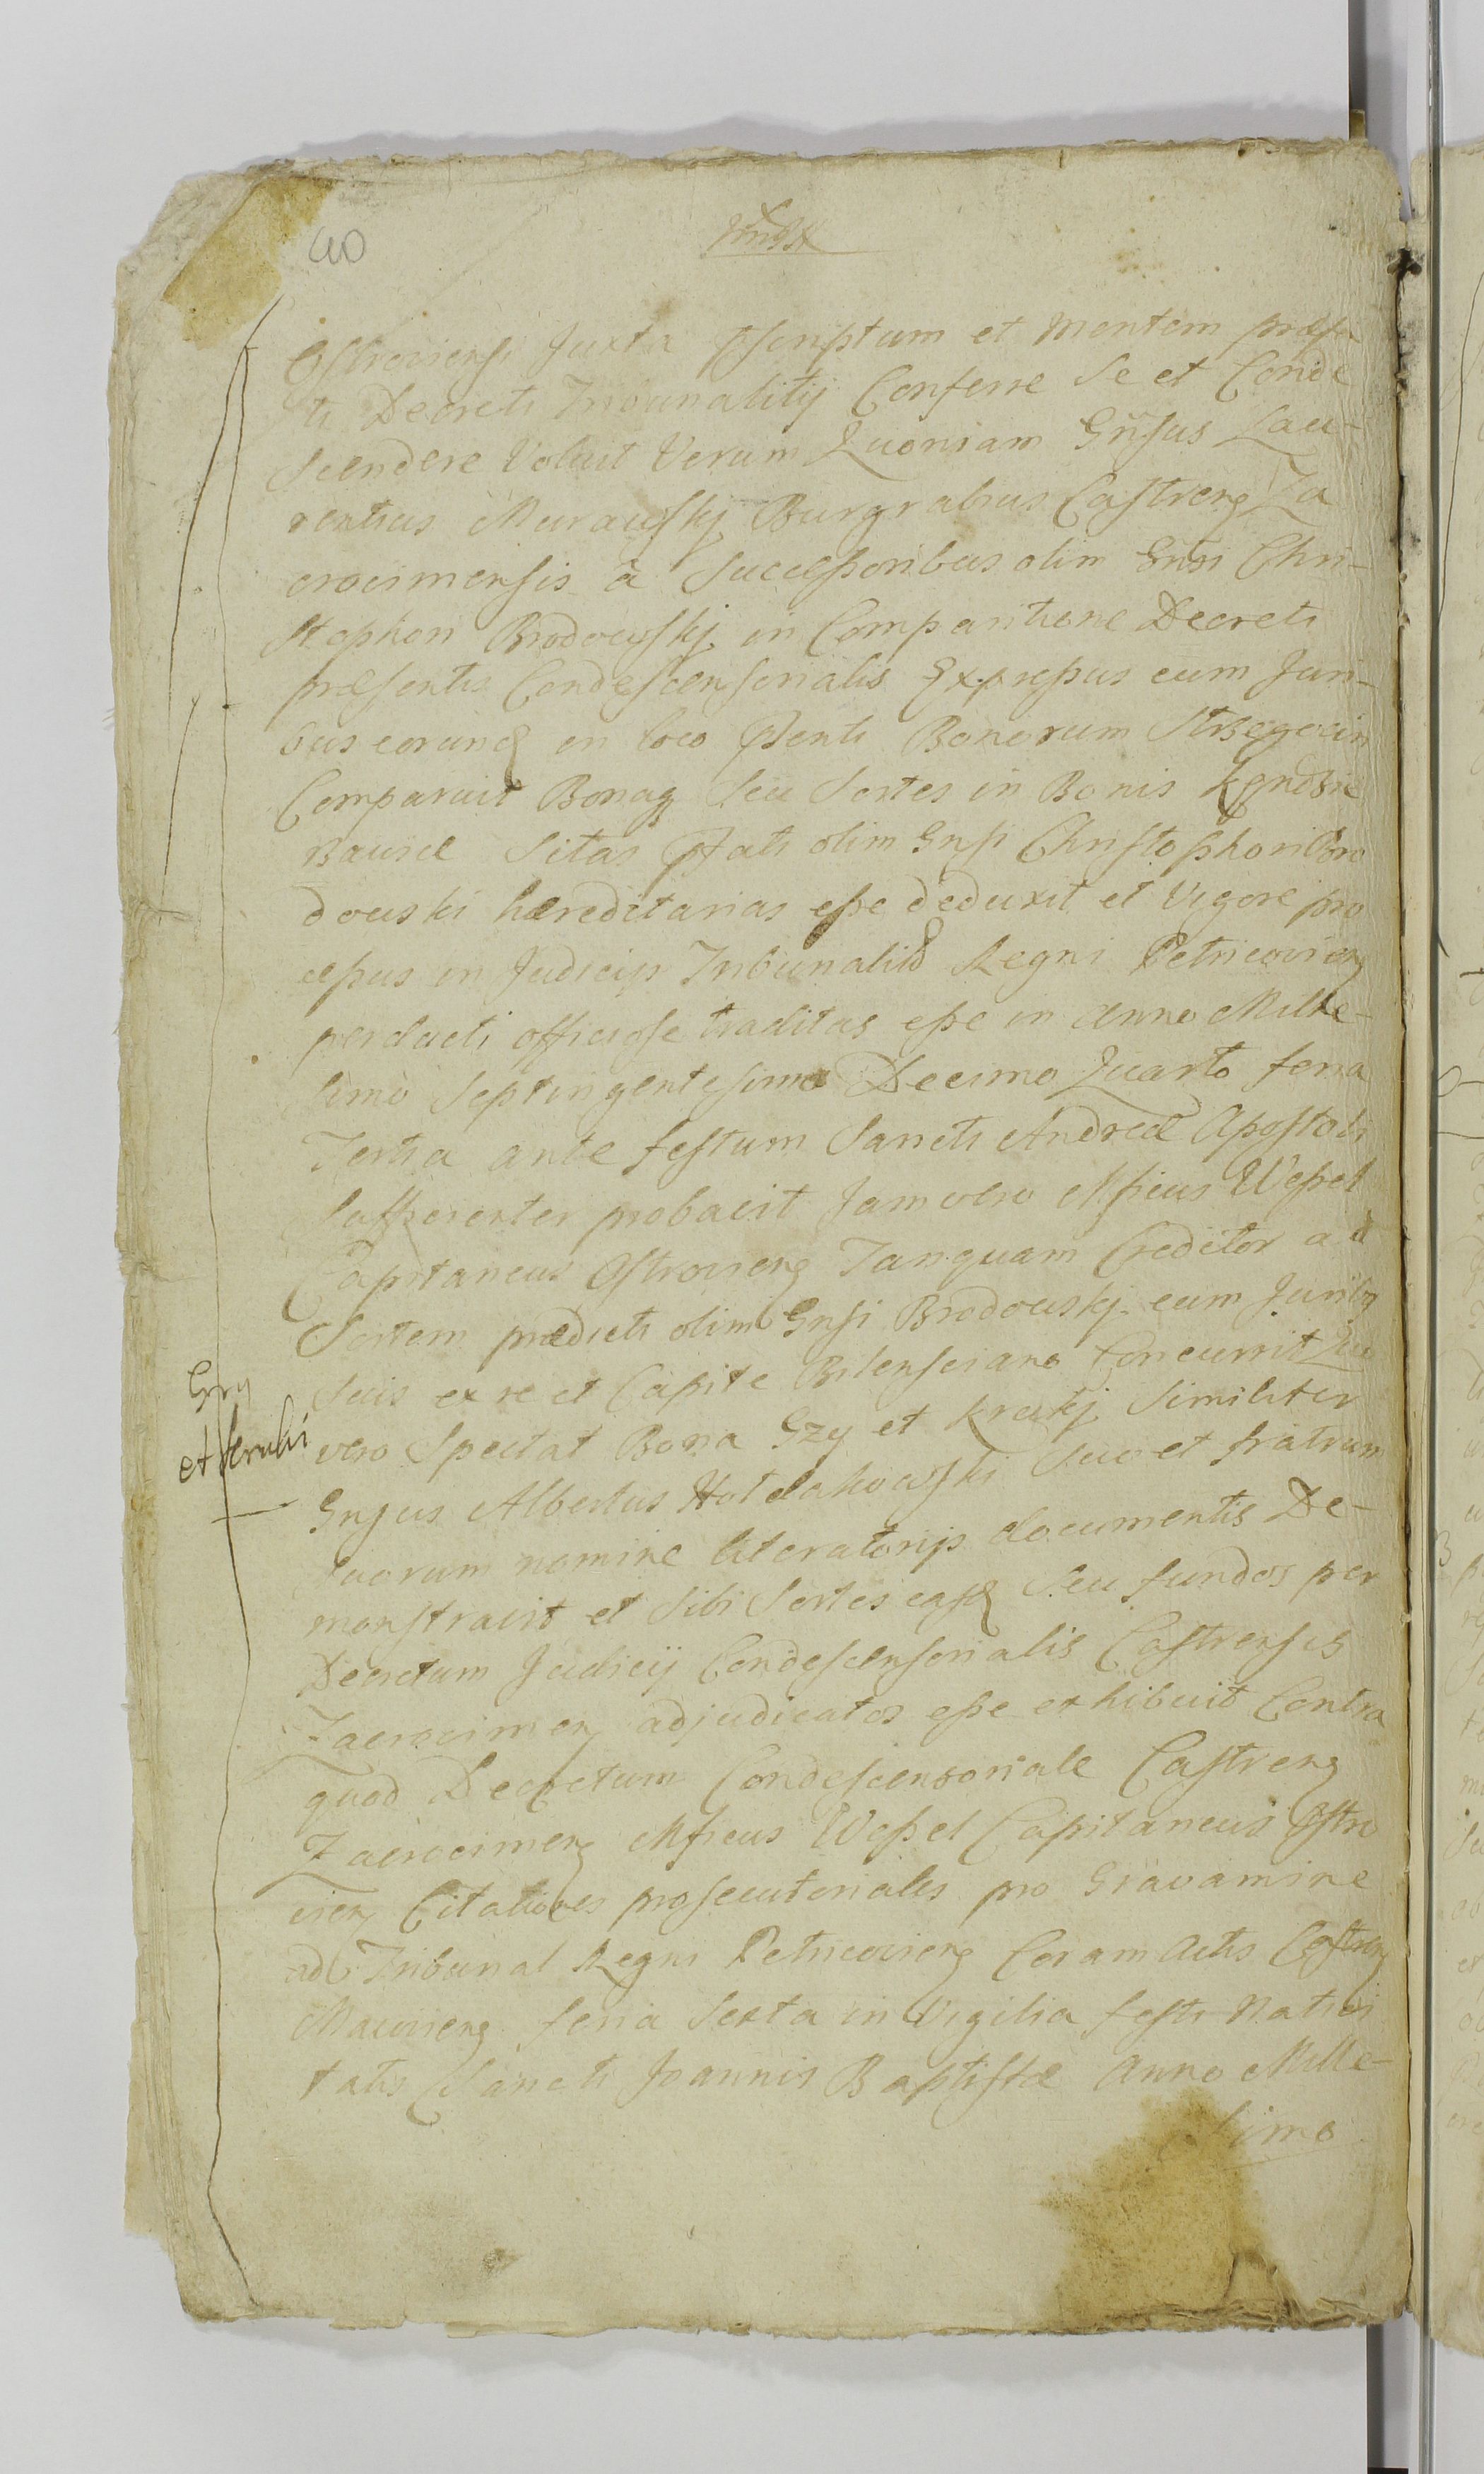 40
Ostroviensi Juxta pscriptum et mentem præfa
ti Decreti Tribunalitij Conferre Se et Conde
Scendere Voluit Verum Quoniam Gnsus Lau-
rentius Murawskj Burgrabius Castreng Za
crocimensis à Successoribus olim Gnsi Chri-
Stophori Brodowskj in Comparitione Decreti
præsentis Condescensorialis Expressus cum Juri-
bus eorunq in loco psenti Bonorum
Comparuit Bonaq Seu Sortes in Bonis
Sitas pfati olim Gnsi Christophori Bro
dowski hæreditarias esse deduxit et Vigore pro
cessus in Judicijs Tribunalib Regni Petricovieng
perducti officiose traditas esse in Anno Mille-
simo Septingentesimo Decimo Quarto feria
Tertia ante festum Sancti Andreæ Apostoli
Sufficienter probavit Jam vero Mficus Wessel
Capitaneus Ostrovieng Tanquam Creditor ad
Sortem prædicti olim Gnsi Brodowskj cum Juribq
Suis ex re et Capite Concurrit Quo
vero Spectat Bona Gzy et Kreskj Similiter
Gnsus Albertus Suo et fratrum
Suorum nomine literatorijs documentis De-
monstravit et Sibi Sortes easq Seu fundos per
Decretum Judicij Condescensorialis Castrensis
Zacrocimeng adjudicatos esse exhibuit Contra
quod Decretum Condescensoriale Castreng
Zacrocimeng Mficus Wessel Capitaneus Ostro
vieng Citationes prosecutoriales pro Gravamine
ad Tribunal Regni Petricovieng Coram Actis Castreng
feria Sexta in Vigilia festi Nativi
tatis Sancti Joannis Baptistæ Anno Mille-
simo